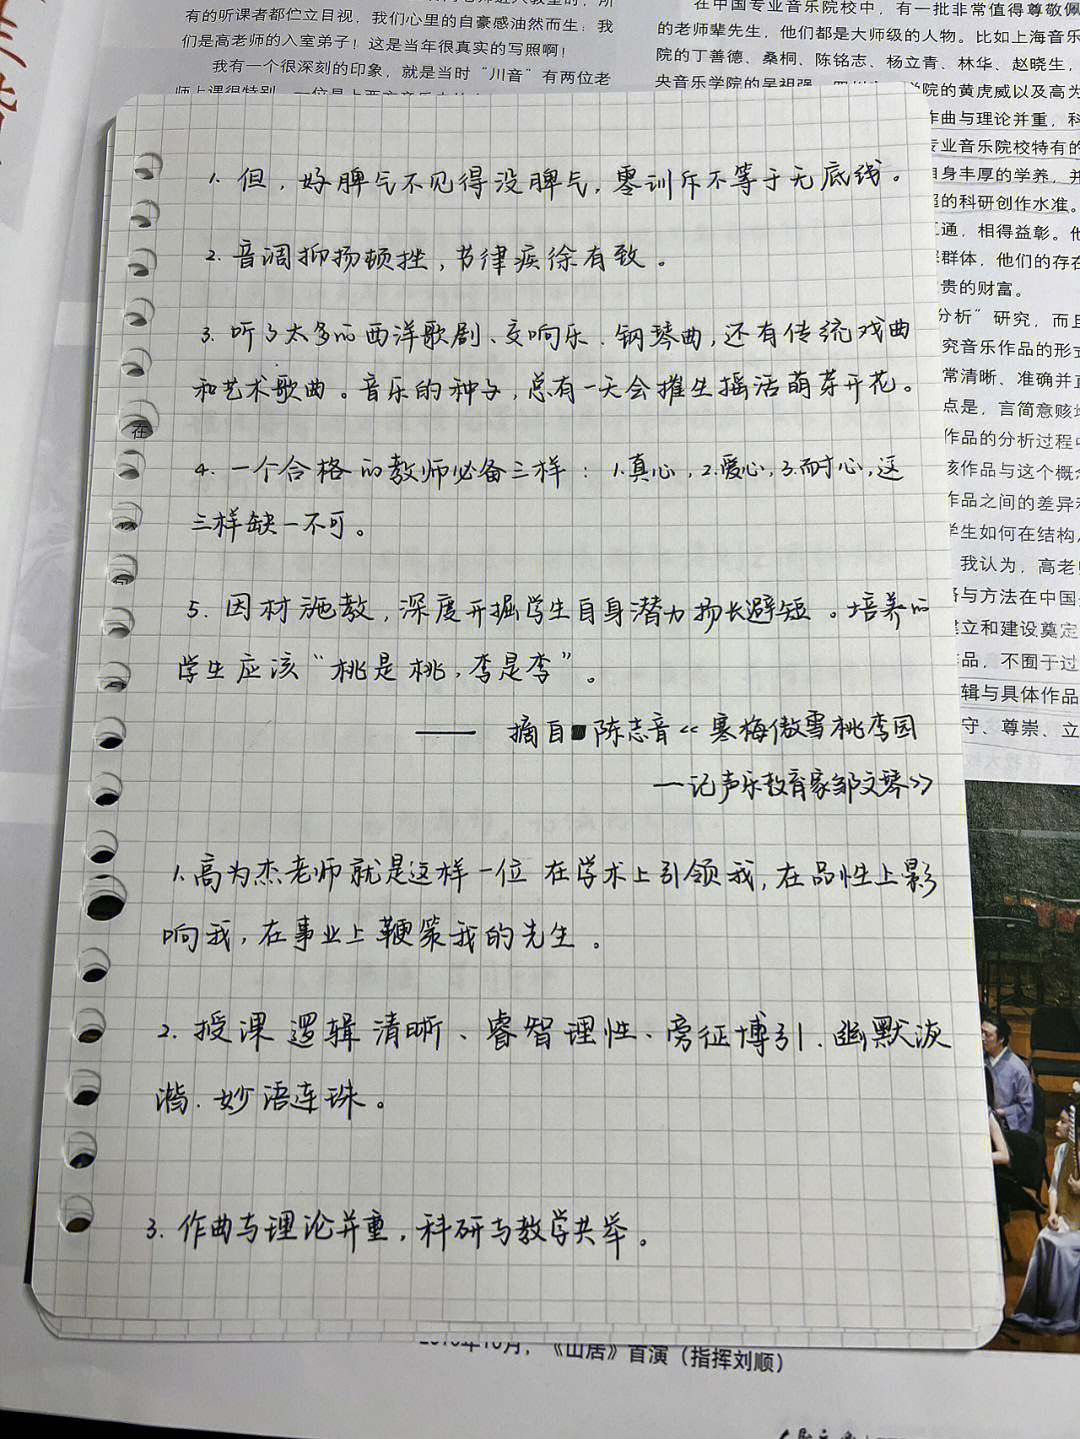 有的听课者都伫立目视，我们心里的自豪感油然而生：我
们是高老师的入室弟子！这是当年很真实的写照啊！
我有一个很深刻的印象，就是当时“川音”有两位老
在中国专业音乐院校中，有一批非常值得尊敬佩
的老师辈先生，他们都是大师级的人物。比如上海音乐
院的丁善德、桑桐、陈铭志、杨立青、林华、赵晓生，
央音乐学院的吴祖强
学院的黄虎威以及高为
作曲与理论并重，科
专业音乐院校特有的
自身丰厚的学养，并
超的科研创作水准。
互通，相得益彰。他
群体，他们的存在
贵的财富。
分析”研究，而且
究音乐作品的形式
常清晰、准确并直
点是，言简意赅地
作品的分析过程中
该作品与这个概念
作品之间的差异和
学生如何在结构
我认为，高老师
与方法在中国
建立和建设奠定
作品，不囿于过
辑与具体作品
守、尊崇、立
1. 但，好脾气不见得没脾气，零训斥不等于无底线。
2. 音调抑扬顿挫，节律疾徐有致。
3. 听了太多的西洋歌剧、交响乐、钢琴曲，还有传统戏曲
和艺术歌曲。音乐的种子，总有一天会摧生摇活萌芽开花。
在
4. 一个合格的教师必备三样：1.真心，2.爱心，3.耐心，这
三样缺一不可。
5. 因材施教，深度开掘学生自身潜力扬长避短。培养的
学生应该“桃是桃，李是李”。
—— 摘自陈志音《寒梅傲雪桃李园
—记声乐教育家邹文琴》
1.高为杰老师就是这样一位在学术上引领我，在品性上影
响我，在事业上鞭策我的先生。
2. 授课逻辑清晰、睿智理性、旁征博引、幽默泼
濺、妙语连珠。
3. 作曲与理论并重，科研与教学共举。
年10月，《山居》首演（指挥刘顺）